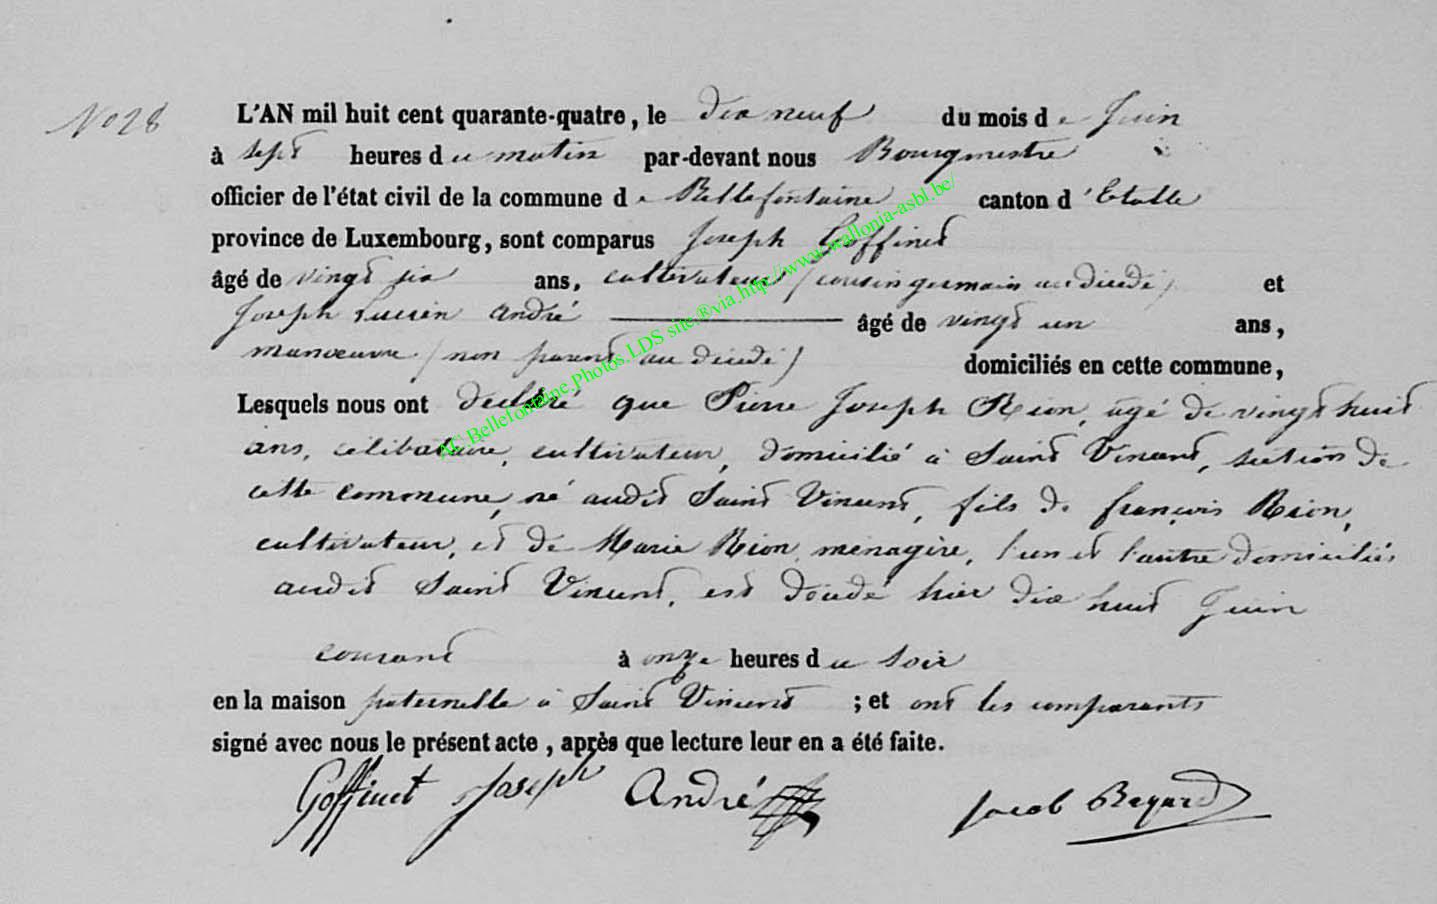 No 28
L'AN mil huit cent quarante-quatre, le dix neuf du mois de Juin
à sept heures du matin par-devant nous Bourgmestre
officier de l'état civil de la commune de Bellefontaine canton d'Etalle
province de Luxembourg, sont comparus Joseph Goffinet
âgé de vingt six ans, cultivateur (cousin germain au décédé) et
Joseph Lucien André âgé de vingt un ans,
manœuvre (non parent au décédé) domiciliés en cette commune,
Lesquels nous ont déclaré que Pierre Joseph Rion, âgé de vingt huit
ans, célibataire, cultivateur, domicilié à Saint Vincent, section de
cette commune, né audit Saint Vincent, fils de françois Rion,
cultivateur, et de Marie Rion, ménagère, l'un et l'autre domiciliés
audit Saint Vincent, est décédé hier dix huit Juin
courant à onze heures du soir
en la maison paternelle à Saint Vincent ; et ont les comparants
signé avec nous le présent acte, après que lecture leur en a été faite.
Goffinet Joseph André Jacob Bayard
AC.Bellefontaine.Photos.LDS site.®via.http://www.wallonia-asbl.be/